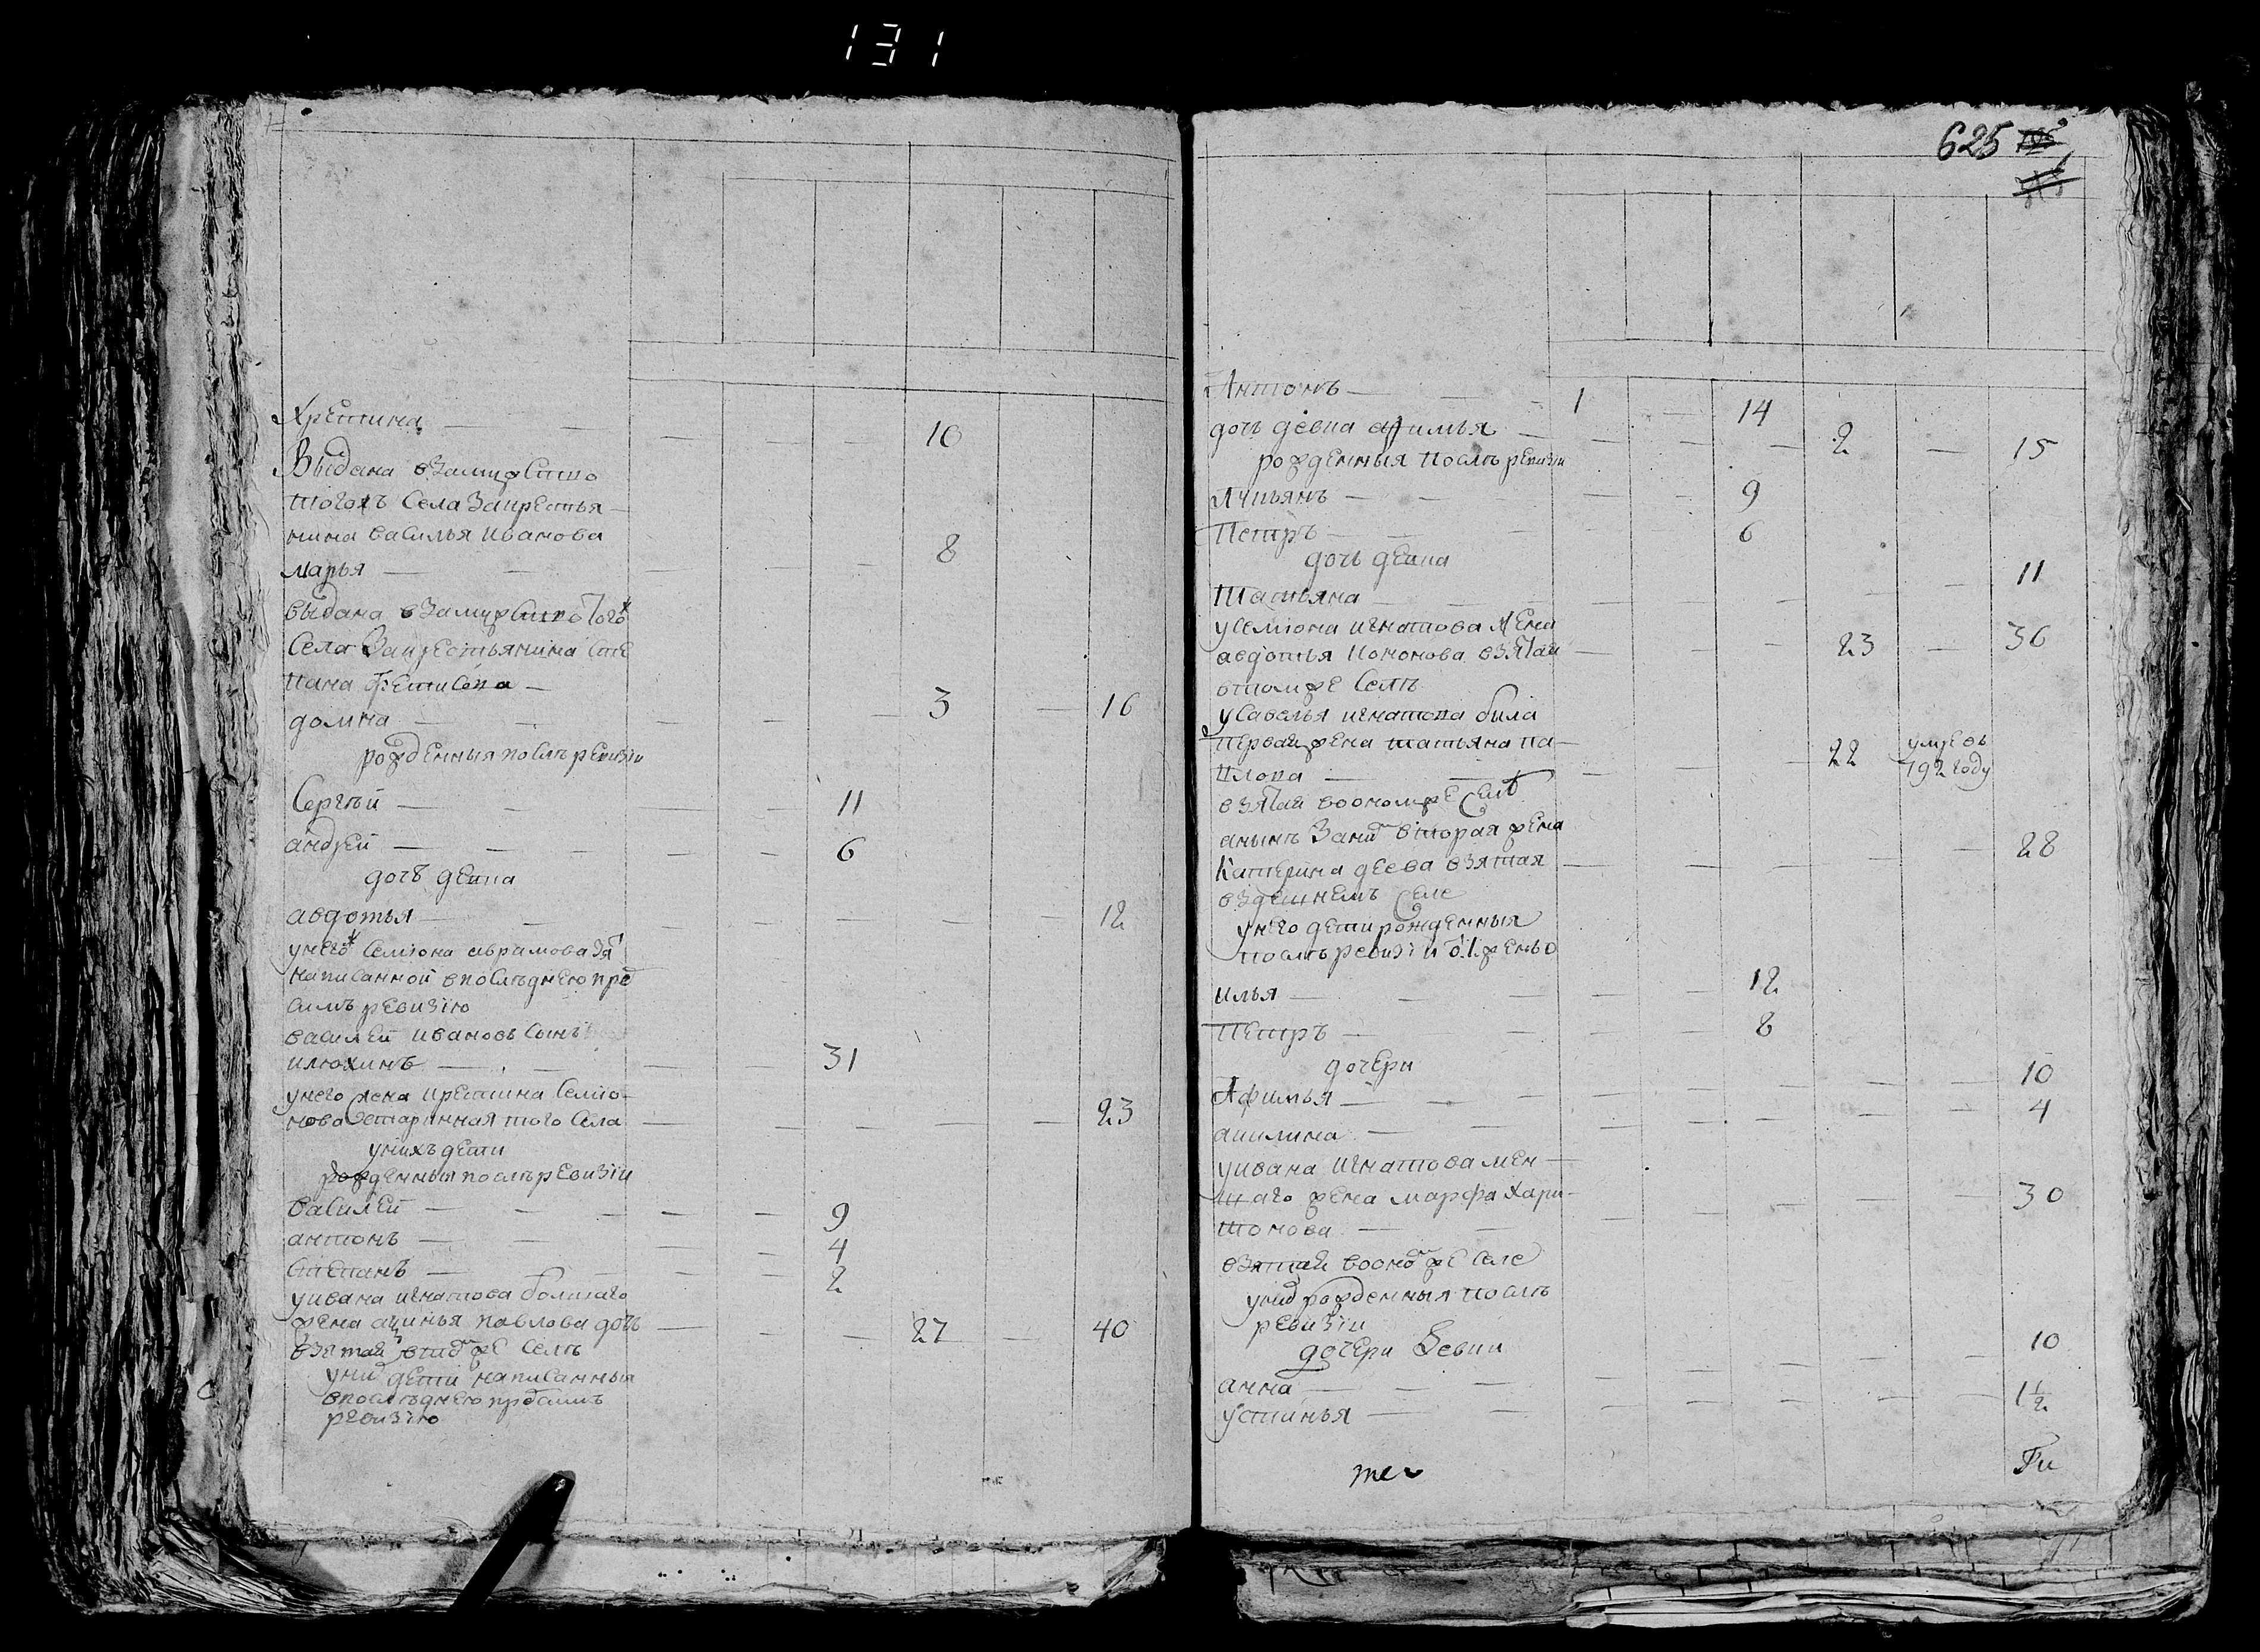 131
Хретина — — — — — 10
Выдана взамужство
тогожъ села закрестья
нина василья иванова
марья — — — 8
выдана взамужство того ж
села закрестьянина сте
пана фетисова —
домна — — — — — 3 — 16
рожденныя послѣ ревизiи
Сергѣй — — — — 11
андрей — — — — — 6
дочь девка
авдотья — — — — — — 12
унегож семiона аврамова зят
написанной впоследнею пред
симъ ревизiю
василей ивановъ сынъ
илюхинъ — — — — 31
унего жена кретина семiо
нова старинная того села — — — — — 23
унихъ дети
рожденныя послѣ ревизiи
василей — — — — — 9
антонъ — — — — 4
степанъ — — — — 2
уивана игнатова болшаго
жена аксинья павлова дочь — — — 27 — 40
взятая втомже селѣ
уних дети написанныя
впоследнею пред симъ
ревизiю
625
Антонъ — — — 1 — 14
дочь девка афимья — — — — — 2 — 15
рожденныя послѣ ревизiи
лукьянъ — — — — — 9
Петръ — — — 6
дочь девка
Татьяна — — — — — — 11
усемiона игнатова жена
авдотья кононова взятая — — — 23 — 36
втомже селѣ
усавелья игнатова была
первая жена татьяна па—
влова — — — — — 22 умре въ
792 году
взятая вооном же селѣ
анынѣ за ним вторая жена
катерина деева взятая — — — — — 28
вздешнемъ селе
унего дети рожденныя
послѣ ревизiи от 1 жены
илья — — — — — 12
Петръ — — — — 8
дочери
Афимья — — — — — — 10
акилина — — — — — — 4
уивана игнатова мен—
шаго жена марфа хари—
тонова — — — — — — 30
взятая вооном же селе
уних рожденныя послѣ
ревизiи
дочери девки
анна — — — — — — 10
устинья — — — — — — 1 1/2